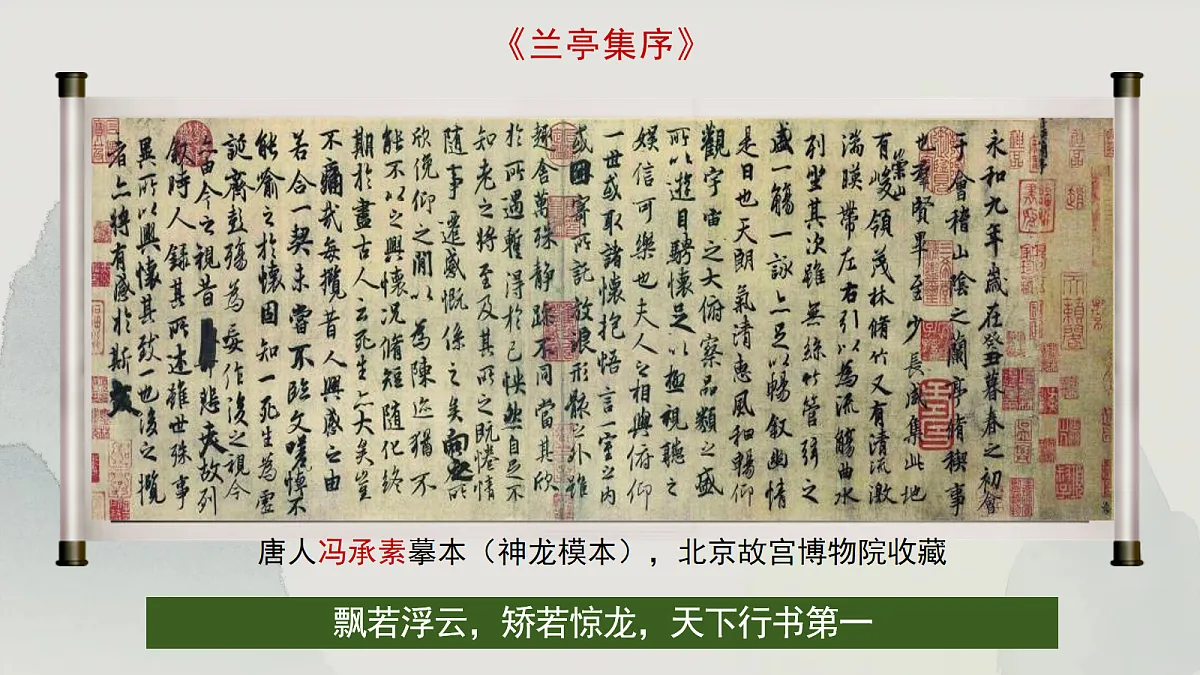 《兰亭集序》
永和九年歲在癸丑暮春之初會
于會稽山陰之蘭亭脩稧事
也羣賢畢至少長咸集此地
有崇山峻領茂林脩竹又有清流激
湍暎帶左右引以為流觴曲水
列坐其次雖無絲竹管弦之
盛一觴一詠亦足以暢叙幽情
是日也天朗氣清惠風和暢仰
觀宇宙之大俯察品類之盛
所以遊目騁懷足以極視聽之
娛信可樂也夫人之相與俯仰
一世或取諸懷抱悟言一室之內
或因寄所託放浪形骸之外雖
趣舍萬殊靜躁不同當其欣
於所遇暫得於己怏然自足不
知老之將至及其所之既惓情
隨事遷感慨係之矣向之所
欣俛仰之閒以為陳迹猶不
能不以之興懷況脩短隨化終
期於盡古人云死生亦大矣豈
不痛哉每攬昔人興感之由
若合一契未嘗不臨文嗟悼不
能喻之於懷固知一死生為虛
誕齊彭殤為妄作後之視今
亦由今之視昔悲夫故列
叙時人錄其所述雖世殊事
異所以興懷其致一也後之攬
者亦將有感於斯文
唐人冯承素摹本（神龙模本），北京故宫博物院收藏
飘若浮云，矫若惊龙，天下行书第一